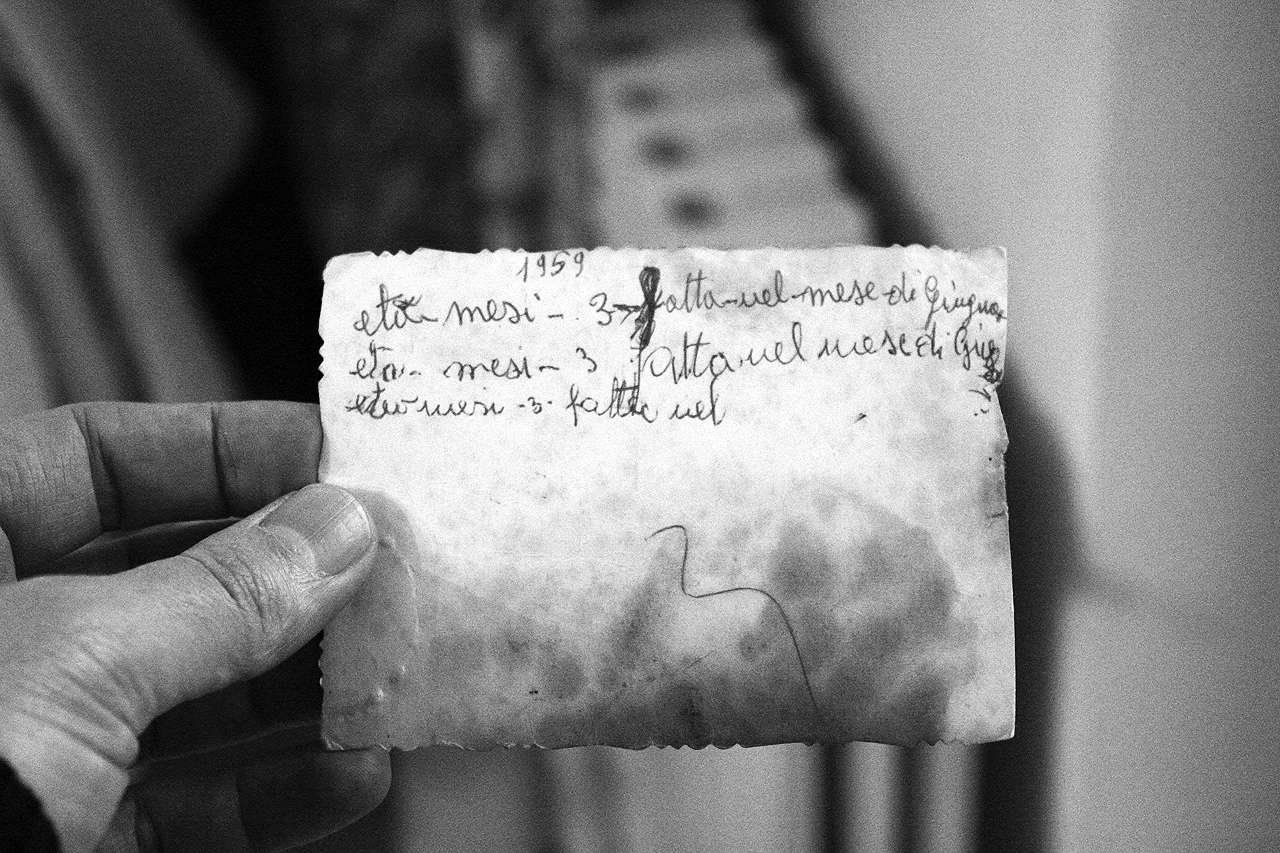 1959
età mesi - 3 fatta nel mese di Giugno
età mesi - 3 fatta nel mese di Giug
età mesi - 3 - fatta nel